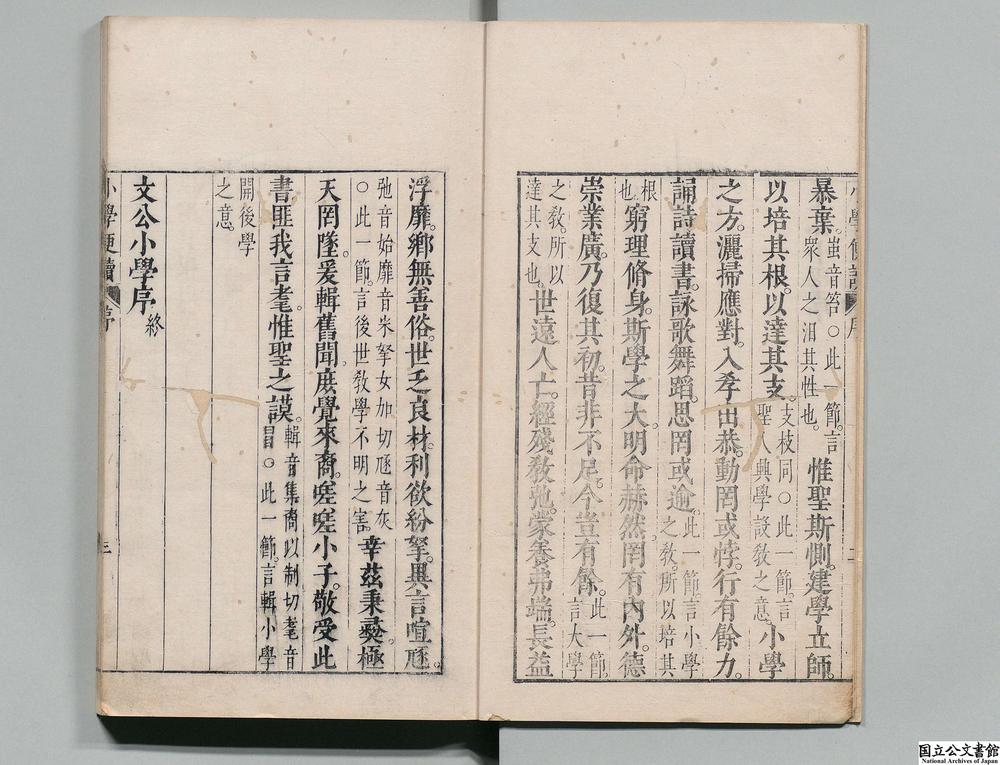 暴棄。蚩音笞○此一節言衆人之汨其性也。惟聖斯惻。建學立師。
以培其根。以達其支。支枝同○此一節言聖人興學設教之意。小學
之方。灑掃應對。入孝出恭。動罔或悖。行有餘力。
誦詩讀書。詠歌舞蹈。思罔或逾。此一節言小學之教。所以培其
根也。窮理脩身。斯學之大。明命赫然。罔有內外。德
崇業廣。乃復其初。昔非不足。今豈有餘。此一節。言大學
之教。所以達其支也。世遠人亡。經殘教弛。蒙養弗端。長益
浮靡。鄉無善俗。世乏良材。利欲紛拏。異言喧豗。
弛音始靡音米拏女加切豗音灰○此一節。言後世教學不明之害。幸茲秉彝。極
天罔墜。爰輯舊聞。庶覺來裔。嗟嗟小子。敬受此
書匪我言耄。惟聖之謨。輯音集裔以制切耄音冒。○此一節。言輯小學
開後學之意。
文公小學序終
小學便讀 序 三
国立公文書館
National Archives of Japan